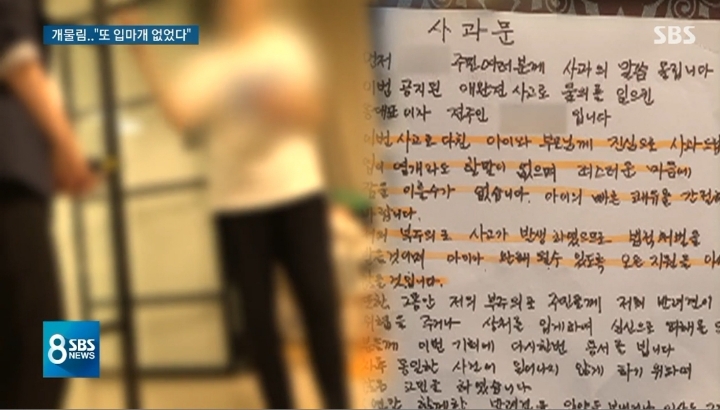 개물림.."또 입마개 없었다"
SBS
사 과 문
먼저 주민여러분께 사과의 말씀 올립니다
이번 공지된 애완견 사고로 물의를 일으킨
동대표이자 견주인 입니다
이번 사고로 다친 아이와 부모님께 진심으로 사과드립
입이 열개라도 할말이 없으며 죄스러운 마음에
잠을 이룰수가 없습니다. 아이의 빠른 쾌유를 간절히
바랍니다.
저의 부주의로 사고가 발생하였으므로 법적처벌을
것이며 아이가 완쾌 될수 있도록 모든 지원을
것입니다.
또한, 그동안 저의 부주의로 주민들께 저희 반려견이
위협을 주거나 상처를 입게하여 심신으로 피해를
분들께 이번 기회에 다시한번 용서를 빕니다
동일한 사건이 일어나지 않게 하기 위하여
고민을 하였습니다
함께한 반려견을
8 SBS NEWS